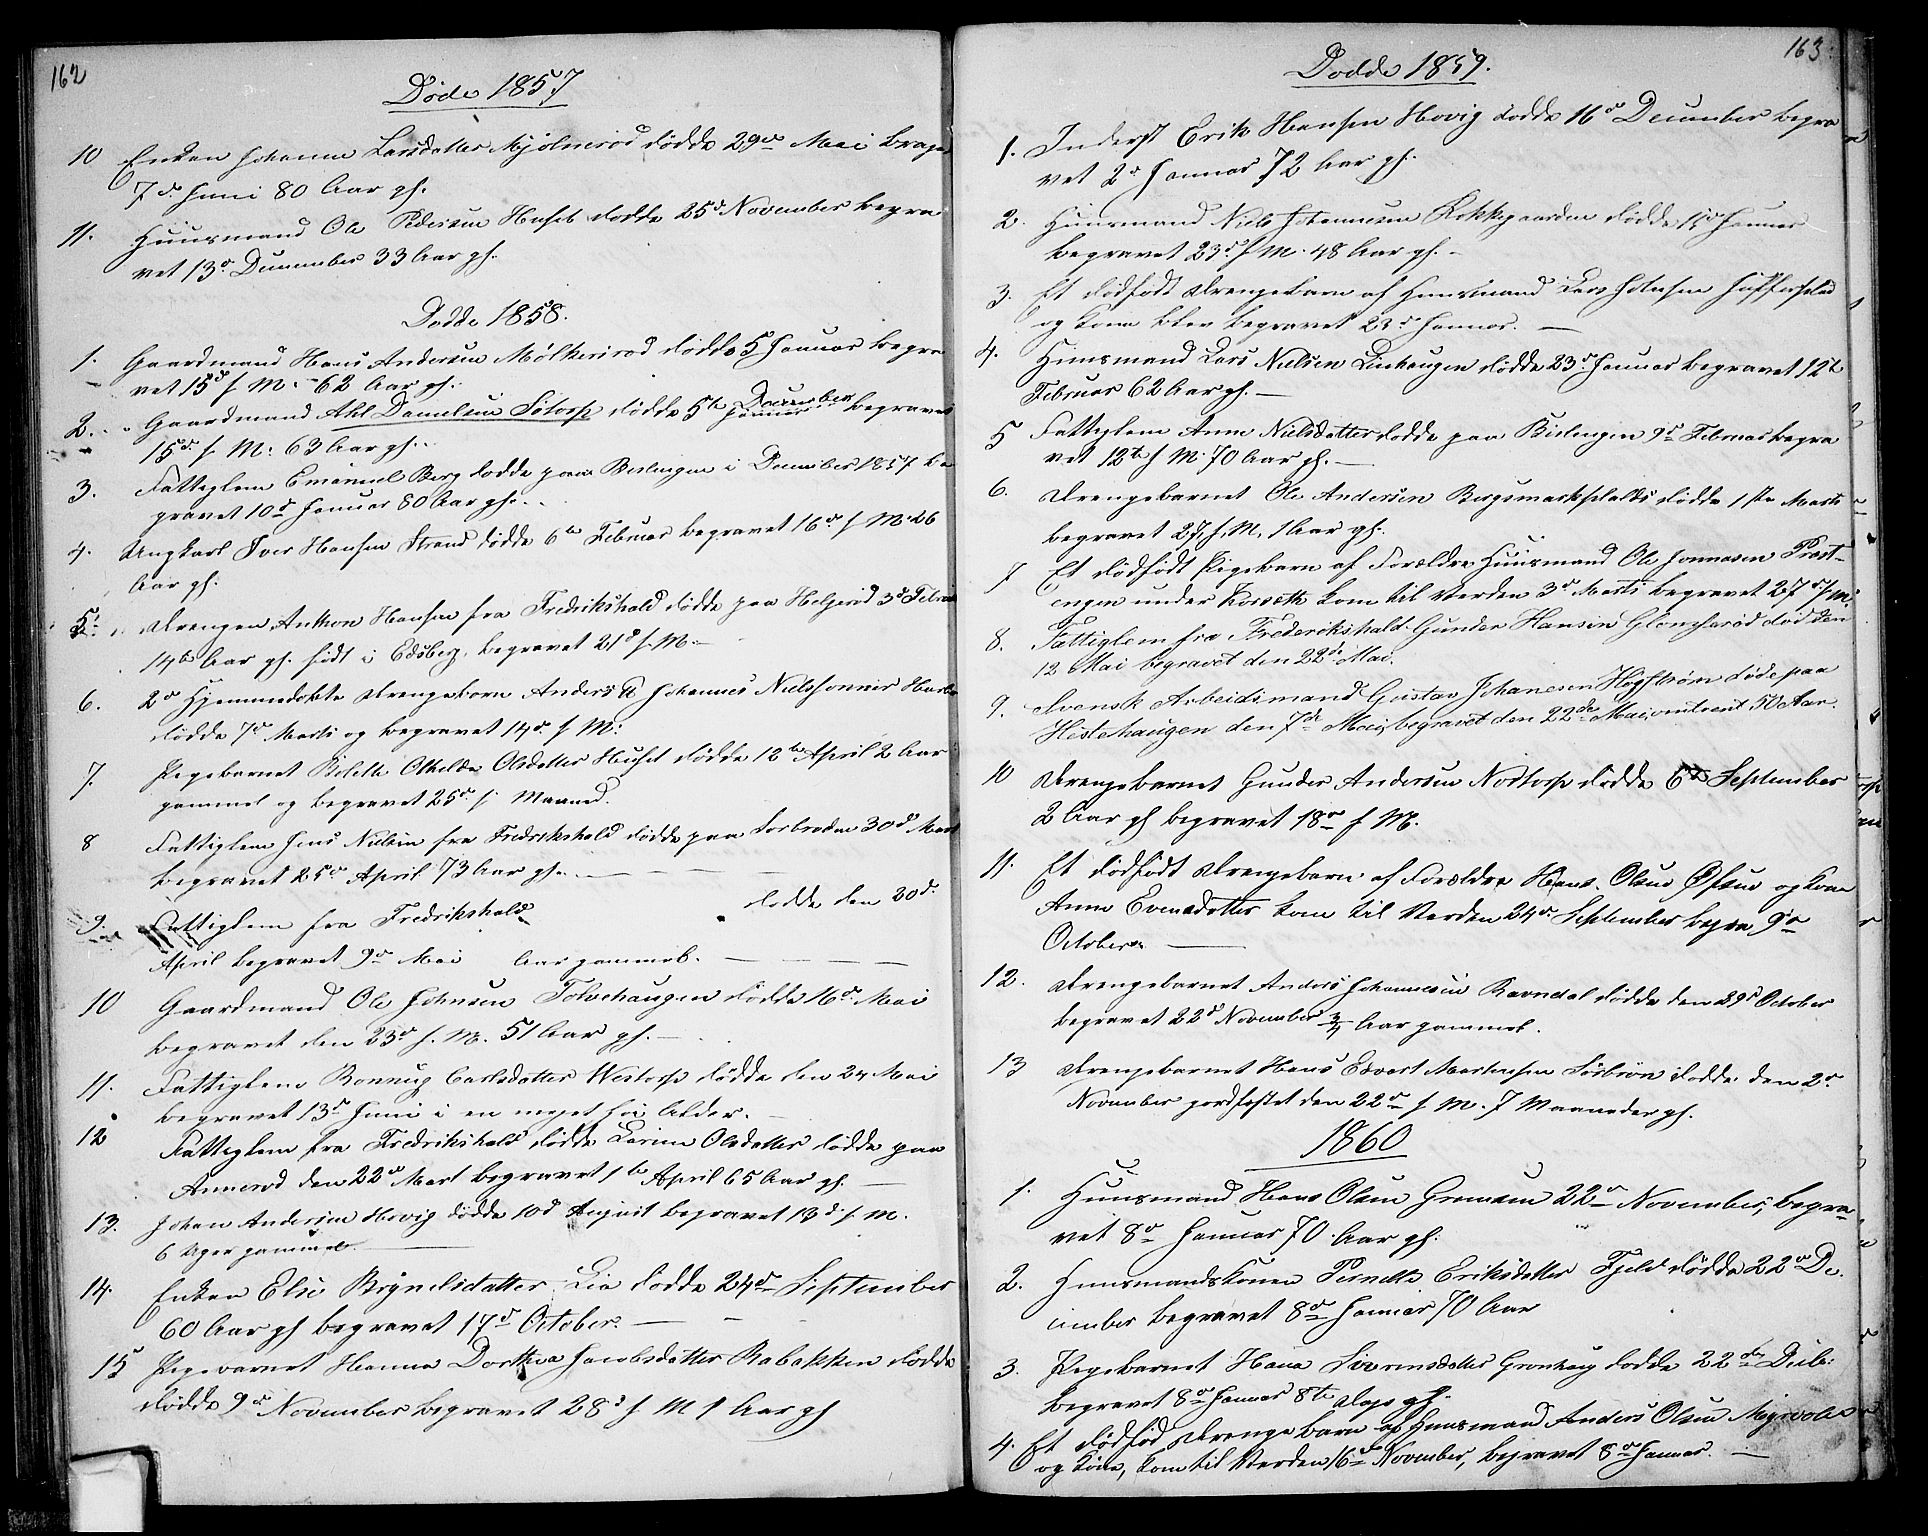 162
Døde 1857
10 Enken Johanne Larsdatter Mjølnerød dødde 29de Mai
7de Juni 80 Aar gl.
11. Huusmand Ole Pedersen Huset dødde 25de November begra
vet 13de December 33 Aar gl.
Dødde 1858.
1. Gaardmand Hans Andersen dødde 5 Januar begra
vet 15de s. M. 62 Aar gl.
2. Gaardmand Danielsen Sotorp dødde 5te Januar December begravet
15de s. M. 63 Aar gl.
3. Fattiglem Emanuel Berg dødde paa Berlingen i December 1857 be
gravet 10de Januar 80 Aar gl.
4. Ungkarl Iver Hansen Strand dødde 6te Februar begravet 16de s. M. 26
Aar gl.
5. Drengen Anthon Hansen fra Fredrikshald dødde paa Helgerød 3de
14te Aar gl. født i Edsberg, begravet 21de s. M.
6. 2de Hjemmedøbte Drengebørn Anders & Johannes Nielssønner
dødde 7de Marts og begravet 14de s M:
7. Pigebarnet Othilde Olsdatter Huset dødde 12te April 2 Aar
gammel og begravet 25de s. Maaned.
8 Fattiglem Jens Nielsen fra Fredrikshald dødde paa Sørbrøden 30de
begravet 25de April 73 Aar gl.
9. Fattiglem fra Fredrikshald dødde den 30de
April begravet 9de Mai Aar gammel.
10 Gaardmand Ole Johnsen Tolvehaugen dødde 16de Mai
begravet den 23de s. M. 51 Aar gl.
11. Fattiglem Carlsdatter Westorp dødde den 24 Mai
begravet 13de Juni i en meget høi Alder.
12 Fattiglem fra Fredrikshald dødde Karine Olsdatter dødde paa
Annerød den 22de Mart begravet 1te April 65 Aar gl.
13. Johan Andersen Hovig dødde 10de August begravet 13de s. M.
6 Uger gammel.
14. Enken Else Brynelsdatter Lie dødde 24de September
60 Aar gl begravet 17de October.
15 Pigebarnet Hanna Dorthea Jacobsdatter Rabakken dødde
dødde 9de November begravet 28de s M 1 Aar gl
163.
Dødde 1859.
1. Inderst Erik Hansen Hovig dødde 16de December begra
vet 2de Januar 72 Aar gl.
2. Huusmand Niels Johannesen Kokkegaarden dødde Januar
begravet 23de s M. 48 Aar gl.
3. Et dødfødt Drengebarn af Huusmand Lars Johnsen
og Kone blev begravet 23de Januar.
4. Huusmand Lars Nielsen Linhaugen dødde 23de Januar begravet 12te
Februar 62 Aar gl.
5 Fattiglem Anne Nielsdatter dødde paa Berlingen 9de Februar begra
vet 12te s M. 70 Aar gl.
6. Drengebarnet Ole Andersen dødde 1ste Marts
begravet 27 s. M. 1 Aar gl.
7 Et dødfødt Pigebarn af Forældre Huusmand Ole Jonnasen Præst-
engen under Korseth kom til Verden 3de Marts begravet 27de s. M.
8. Fattiglem fra Frederikshald Gunder Hansen død den
12 Mai begravet den 22de Mai.
9. Svensk Arbeidsmand Gustav Johanesen Høgstrøn døde paa
Hestehaugen den 7de Mai, begravet den 22de Mai, omtrent 50 Aar.
10 Drengebarnet Gunder Andersen Nortorp dødde 6te September
2 Aar gl begravet 18de s M.
11. Et dødfødt Drengebarn af Forældre Hans Olsen og Kone
Anne Evensdatter kom til Verden 24de September begra 9de
October.
12. Drengebarnet Anders Johannesen Ravndal dødde den 29de October
begravet 22de November 3/4 Aar gammel.
13 Drengebarnet Hans Edvart Martinsen Sørbrøn dødde den 2de
November jordfæstet den 22de s M. 7 Maaneder gl.
1860
1. Huusmand Hans Olsen 22de November, begra-
vet 8de Januar 70 Aar gl.
2. Huusmandskonen Pernelle Eriksdatter Fjeld dødde 22de De-
cember begravet 8de Januar 70 Aar
3. Pigebarnet Hana Sørensdatter Grønhaug dødde 22de Decb.
begravet 8de Januar 8te Dage gl.
4. Et dødfød Drenge Barn af Huusmand Anders Olsen Myrvold
og Kone, kom til Verden 16de November, begravet 8de Januar.